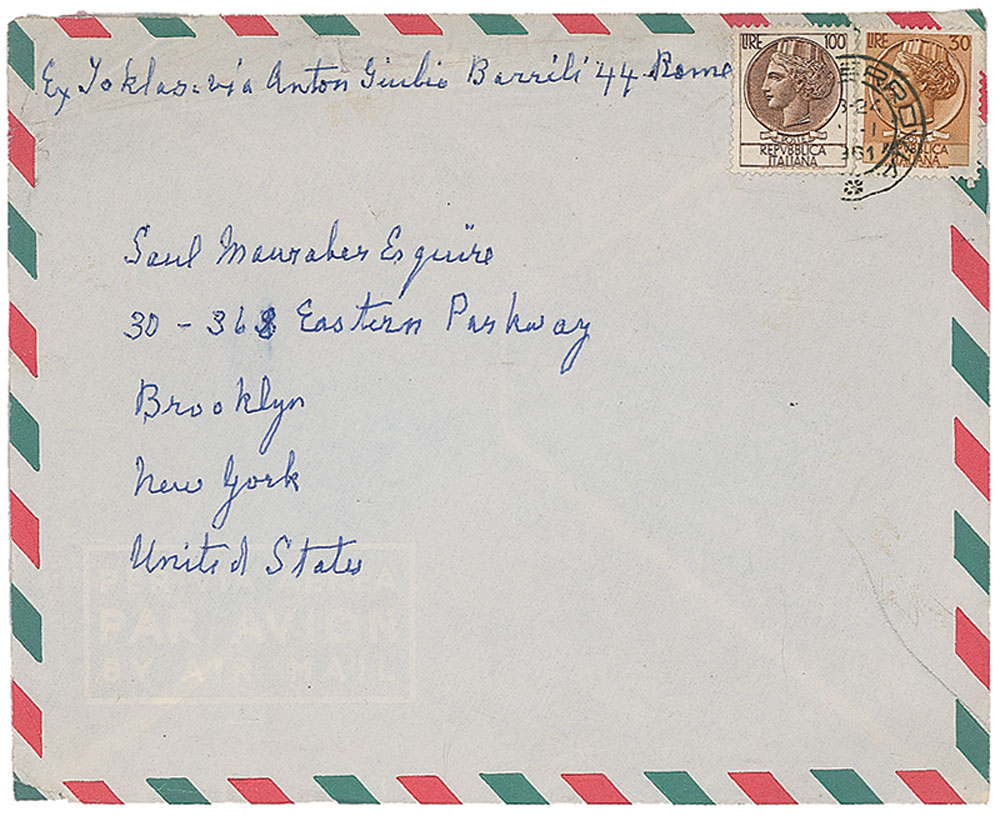 Ex Joklas: via Anton Giulio Barrili 44 Rome
LIRE 100
POSTE
REPVBBLICA
ITALIANA
LIRE 30
REPVBBLICA
ITALIANA
Saul Mauraber Esquire
30 - 368 Eastern Parkway
Brooklyn
New York
United States
PAR AVION
BY AIR MAIL